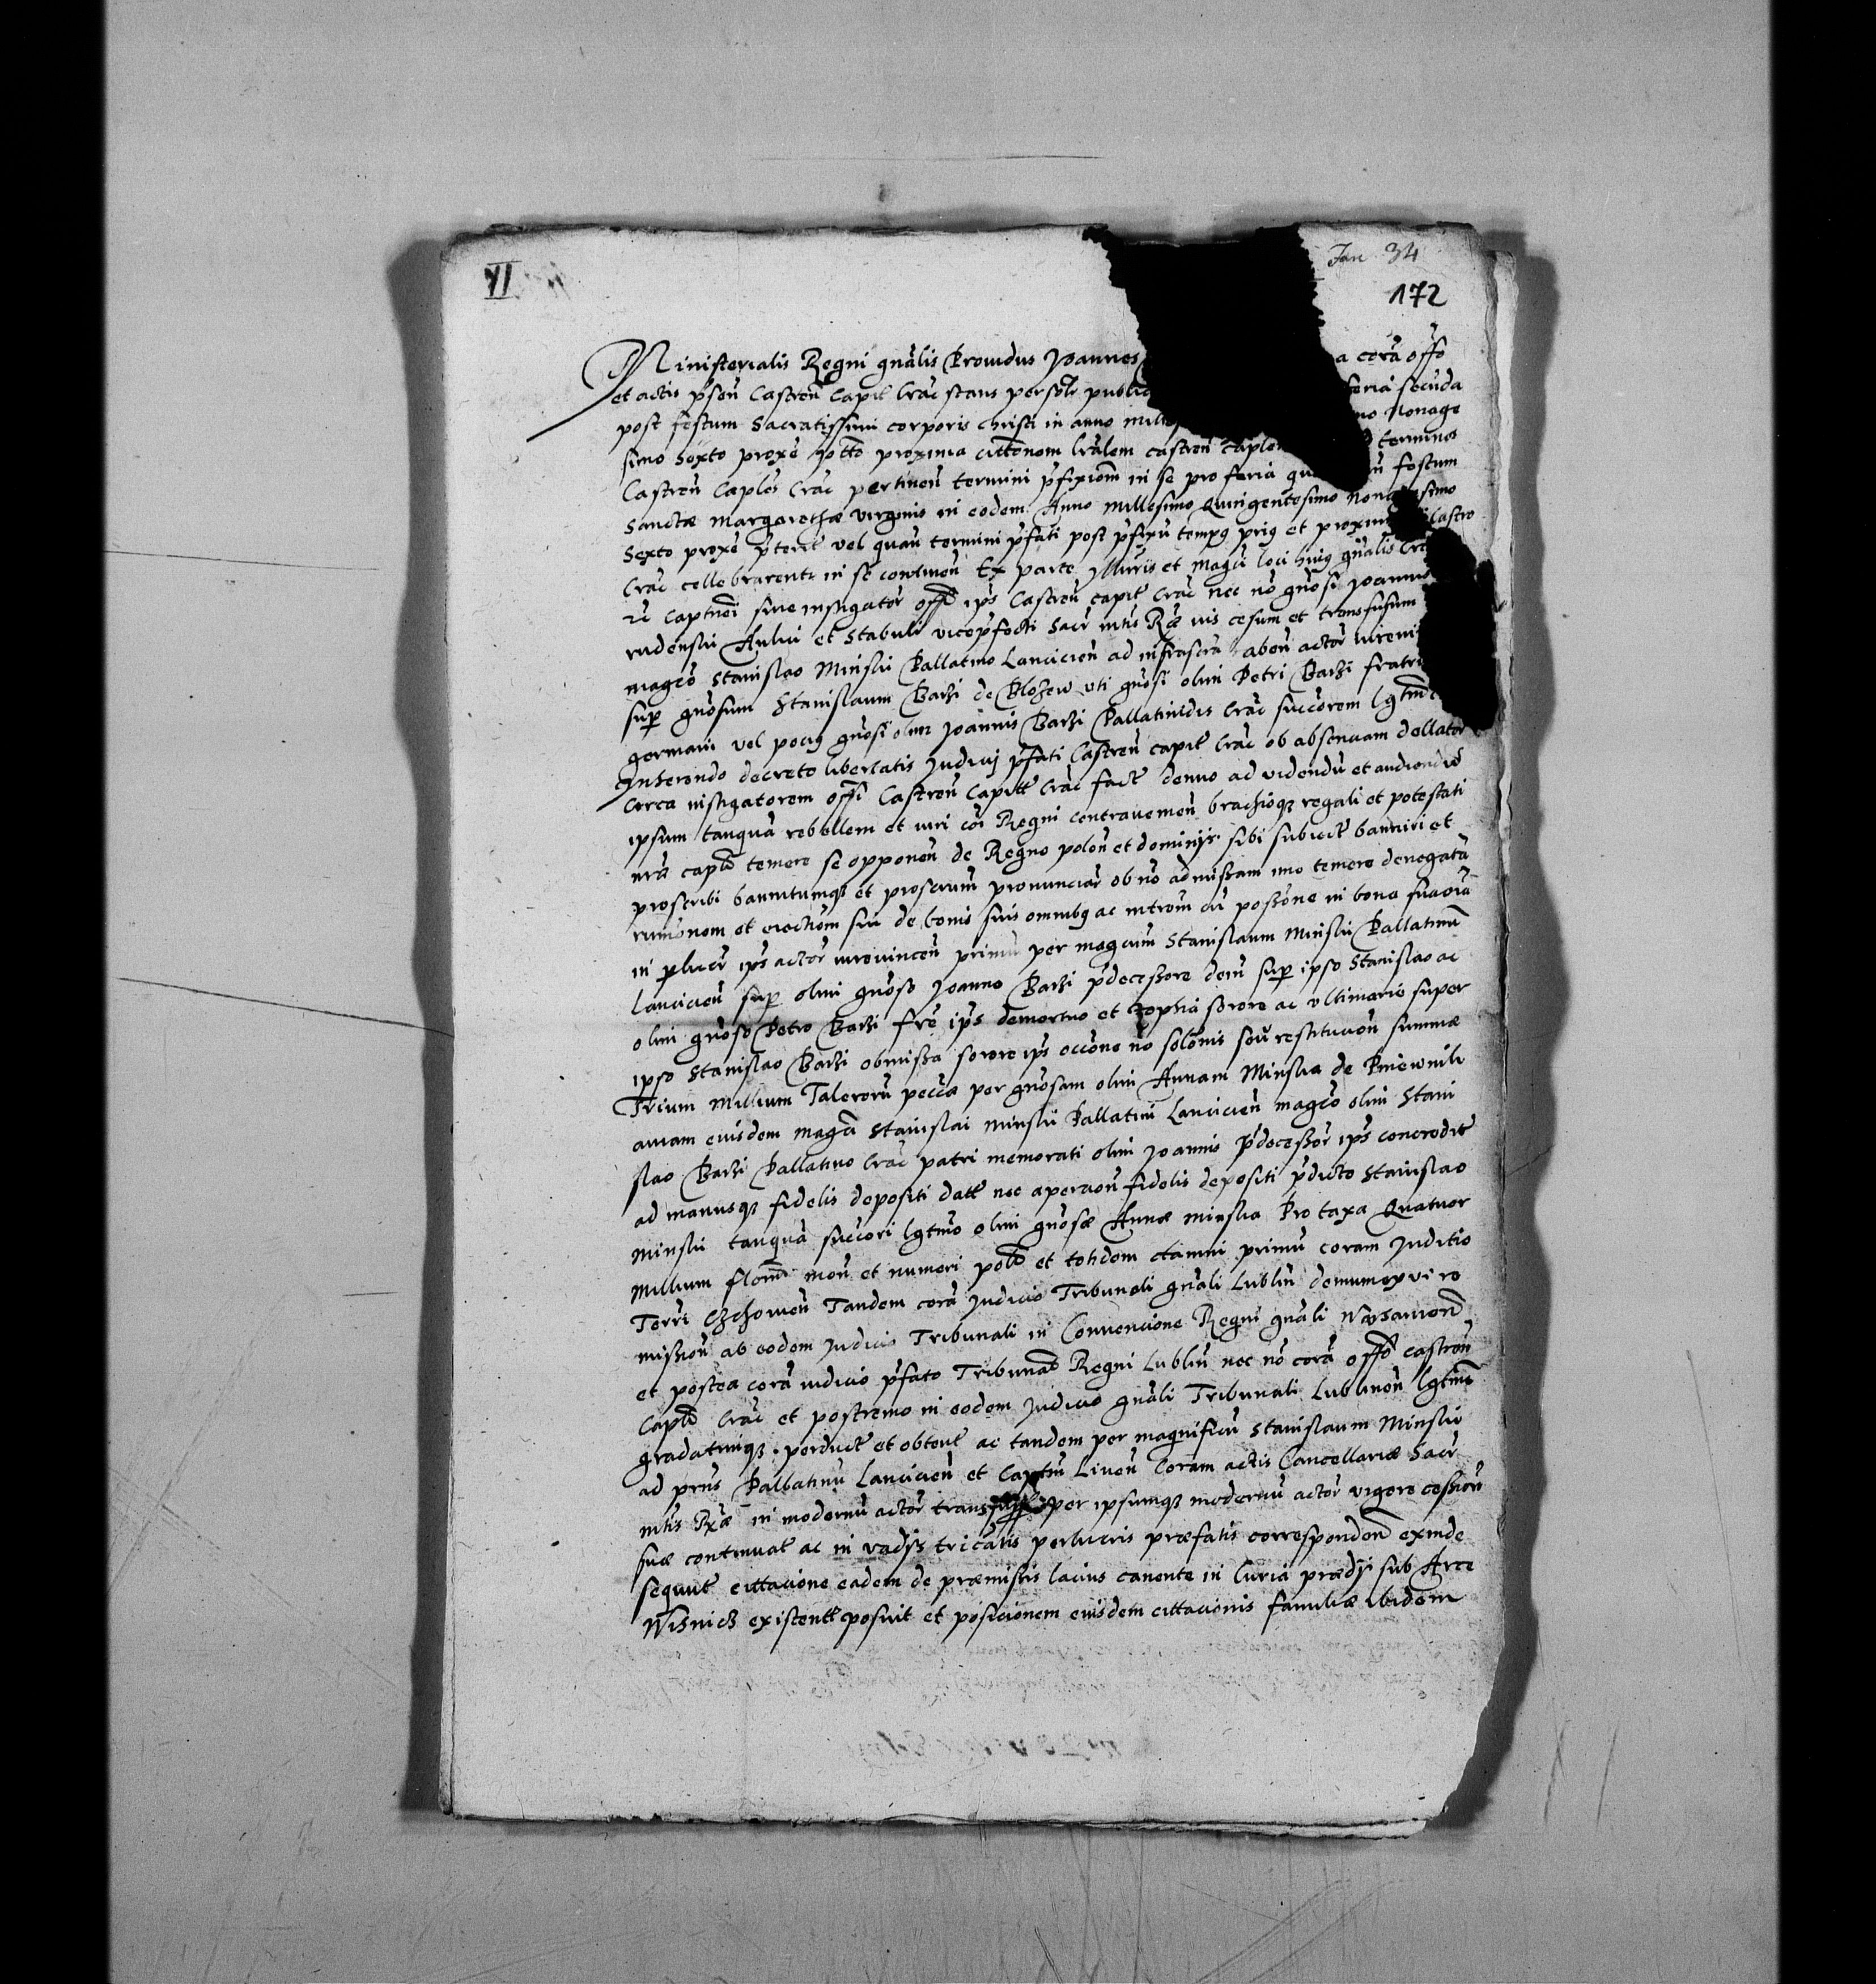 VI
Jan 34
172
Ministerialis Regni gnãlis Prouidus Joannes a corã offo
et actis pñsen Castreñ Capit Crac stans persolr public feria secũda
post festum Sacratissimi corporis christi in anno mille mo Nonage
simo Sexto proxe ptto proxima cittonem lralem castreñ caplem terminos
Castreñ Caples Crac pertineñ termini pfixiom in se pro feria ñ festum
Sanctæ Margarethæ virginis in eodem Anno Millesimo Quingentesimo Nona simo
Sexto proxe pterit vel quan termini pfati post pfixũ tempq priq et proxim Castro
Crac cellebrarentr in se contineñ Ex parte Jllũris et Magci loci huiq gnãlis
ii Captnei siue instigator offi ips Castreñ capit Crac nec nõ gnõsi Joannis
rudenski Aulici et stabuli vicepfecti Sacr mtis Ræ ius cesum et transfusum
magco Stanislao Minski Pallatino Lanciceñ ad infrascra abeñ actor
sup gnosum Stanislaum Barzi de Blozew vti gnõsi olim Petri Barzi fratr
germani vel potiq gnõsi olim Joannis Barzi Pallatinidis Crac succorem lgtm
Jnserendo decreto libertatis Judicij pfati Castreñ capit Crac ob absentiam dellator
Cerca instigatorem offi Castreñ Capitt Crac fact denuo ad videndũ et audiendũ
ipsum tanquã rebellem et iuri coi Regni contraueneñ brachioqz regali et potestati
nrã capld temere se opponeñ de Regno poloñ et dominijs sibi subiect banniri et
proscribi bannitumqz et proscrium pronunciar ob nõ admissam imo temere denegatã
rumonem et euictiom sui de bonis suis omnibq ac introm in possone in bona suaorũ
in plucr ips actor iureuinceñ primũ per magcum Stanislaum Minski Pallatinũ
Lanciceñ sup olim gnõso Joanne Barzi pdecessore dein sup ipso Stanislao ac
olim gnõso Petro Barzi fre ips demortuo et Zophia sorore ac vltimarie super
ipso Stanislao Barzi obmissa sorore ips occone nõ solonis seu restitucioñ summæ
Trium Millium Talerorũ peccæ per gnõsam olim Annam Minska de Pniewnik
amam eiusdem magci Stanislai Minski Pallatini Lanciceñ magco olim Stani
slao Barzi Pallatino Crac patri memorati olim Joannis Pdecessor ips concredit
ad manusqz fidelis depositi datt nec aperaeoñ fidelis depositi pdicto Stanislao
Minski tanquã succori lgtmo olim gnõsæ Annæ Minska Pro taxa Quatuor
Millium flom moñ et numeri pold et totidem damni primũ coram Juditio
Terri Czchouieñ Tandem corã Judicio Tribunali gnãli Lubliñ demumex vi re
missioñ ab eodem Judicio Tribunali in Conuencione Regni gnãli Warsauieñ
et postea corã iudicio pfato Tribunat Regni Lubliñ nec nõ corã offo castreñ
Capld Crac et postremo in eodem Judicio gnãli Tribunali Lublineñ lgtme
gradatimqz perduct et obtent ac tandem per magnificũ Stanislaum Minski
ad prns Pallatinũ Lanciceñ et Captm Liueñ Coram actis Cancellariæ Sacr
mtis Ræ in modernũ actor per ipsumqz modernũ actor vigore cessioñ
suæ continuat ac in vadijs tricatis perlucris præfatis correspondeñ exinde
sequut cittacione eadem de præmissis lacius canente in Curia prædij sub Arce
Wisnicz existentt posuit et posicionem eiusdem cittacionis familiæ ibidem